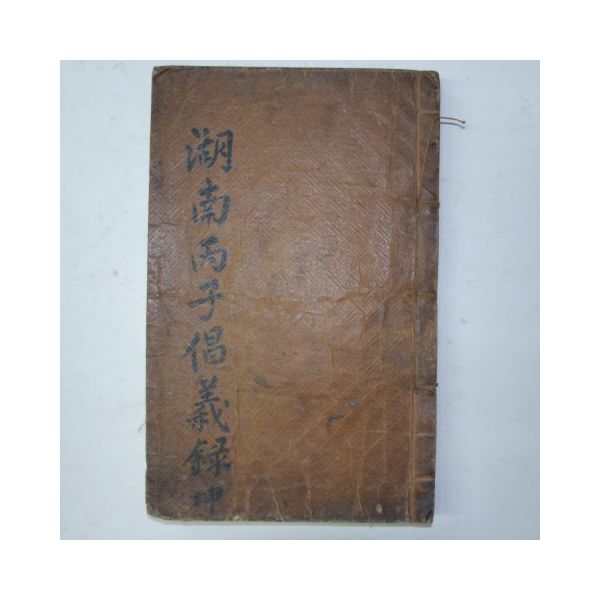 湖南丙子倡義錄 坤